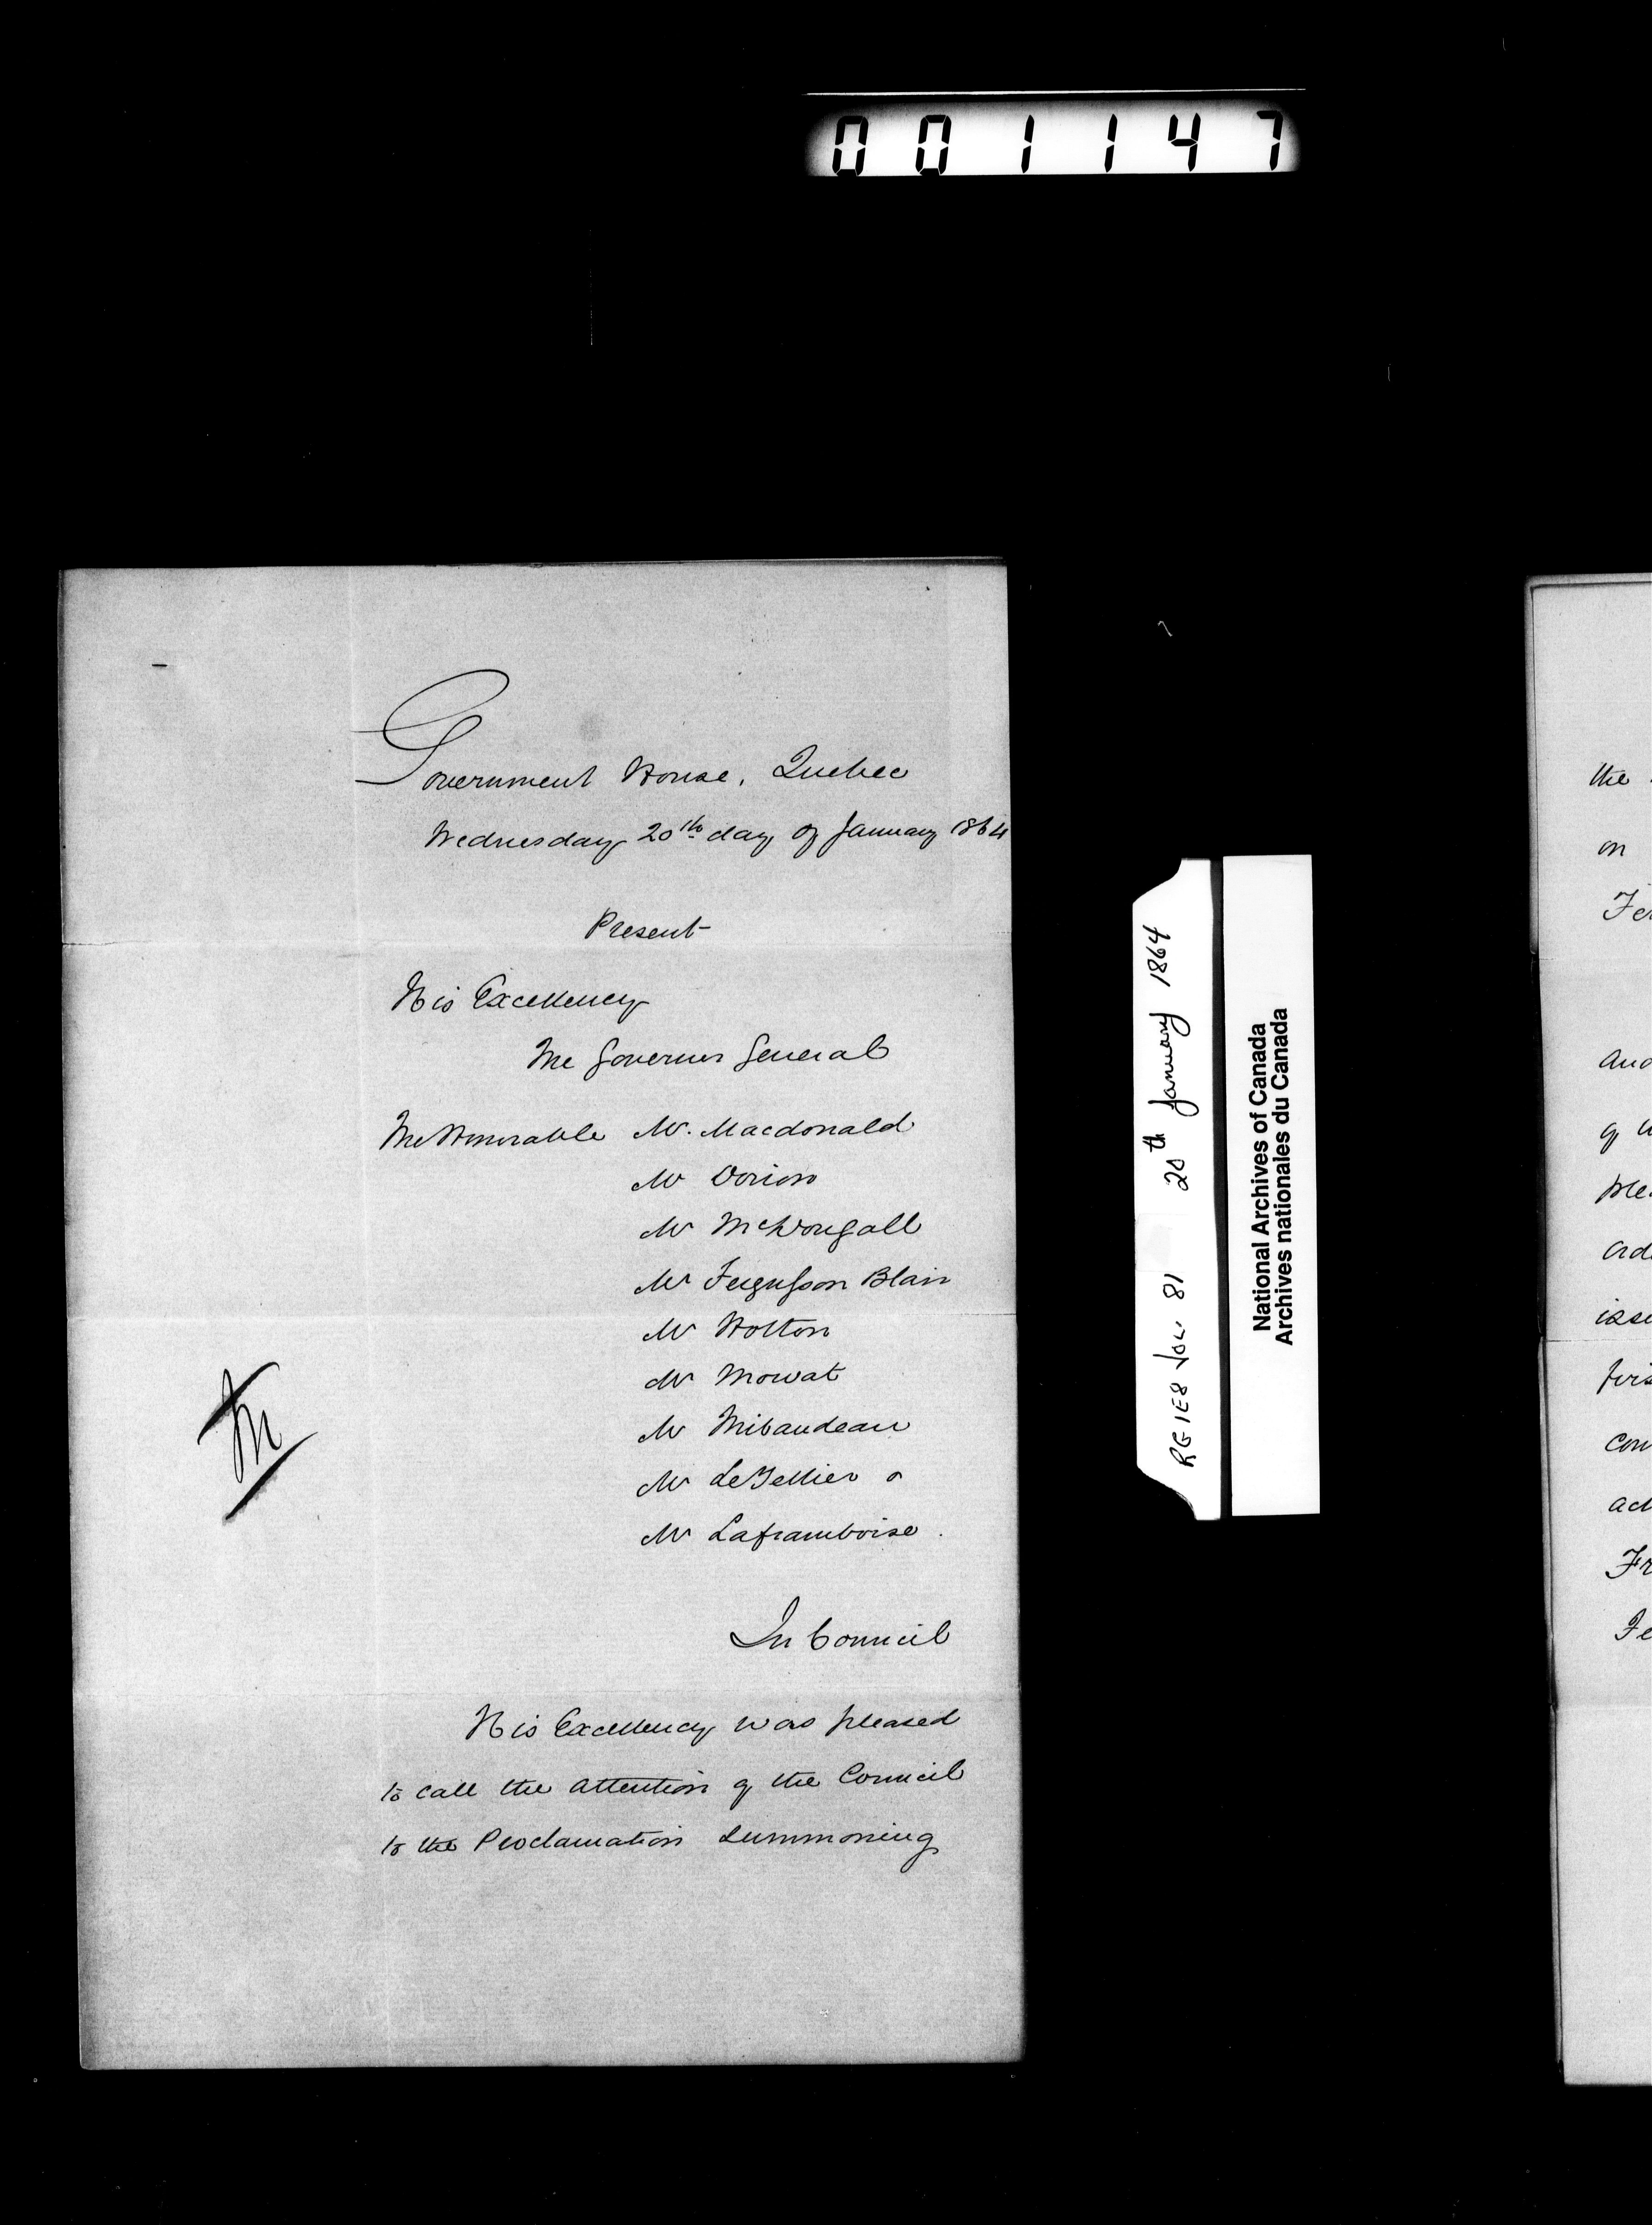 001147
Government House, Quebec
Wednesday 20th day of January 1864
Present
His Excellency
The Governor General
The Honorable Mr. Macdonald
Mr Dorion
Mr McDougall
Mr Fergusson Blair
Mr Holton
Mr Mowat
Mr Thibaudeau
Mr LeTellier &
Mr Laframboise.
In Council
His Excellency was pleased
to call the attention of the Council
to the Proclamation summoning
M
RG1E8 Vol. 81 20th January 1864
National Archives of Canada
Archives nationales du Canada
the
on
Fe
and
of
ple
ord
issu
firs
con
act
Fr
Fe